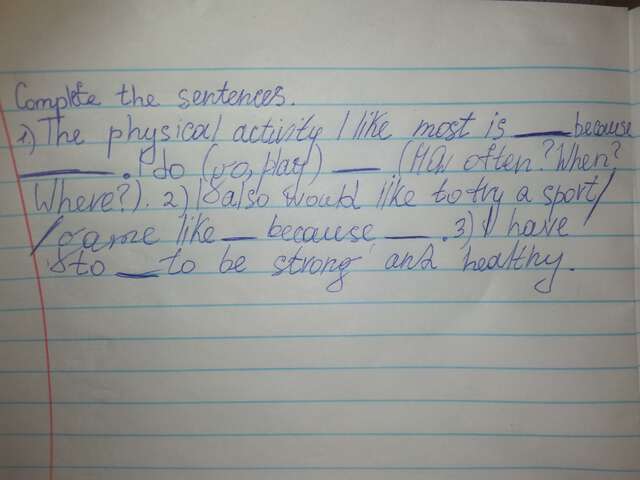 Complete the sentences.
1) The physical activity I like most is ___ because
___. I do (go, play) ___ (How often? When?
Where?). 2) I also would like to try a sport/
/game like ___ because ___. 3) I have
to ___ to be strong and healthy.